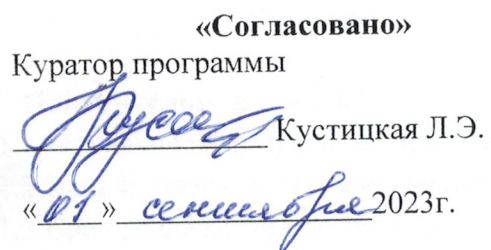 «Согласовано»
Куратор программы
Кустицкая Л.Э.
«01» сентября 2023г.